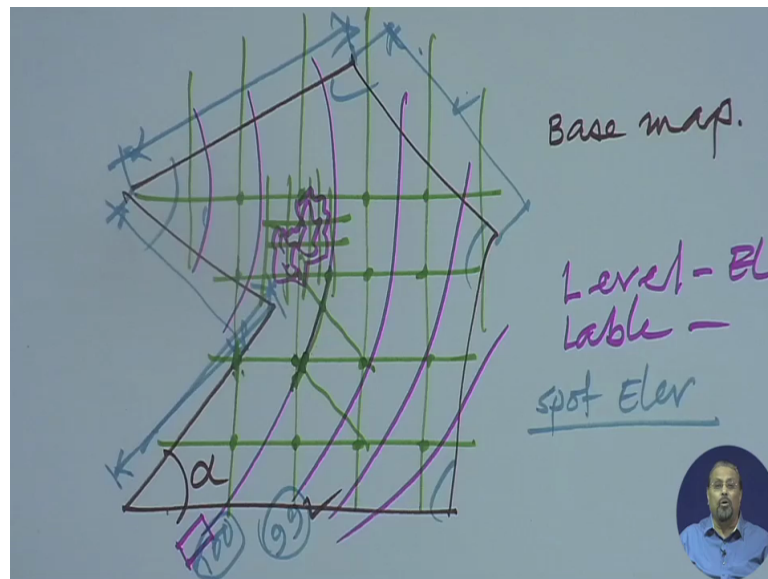 Base map.
Level - EL
Lable -
spot Elev
α
100
99